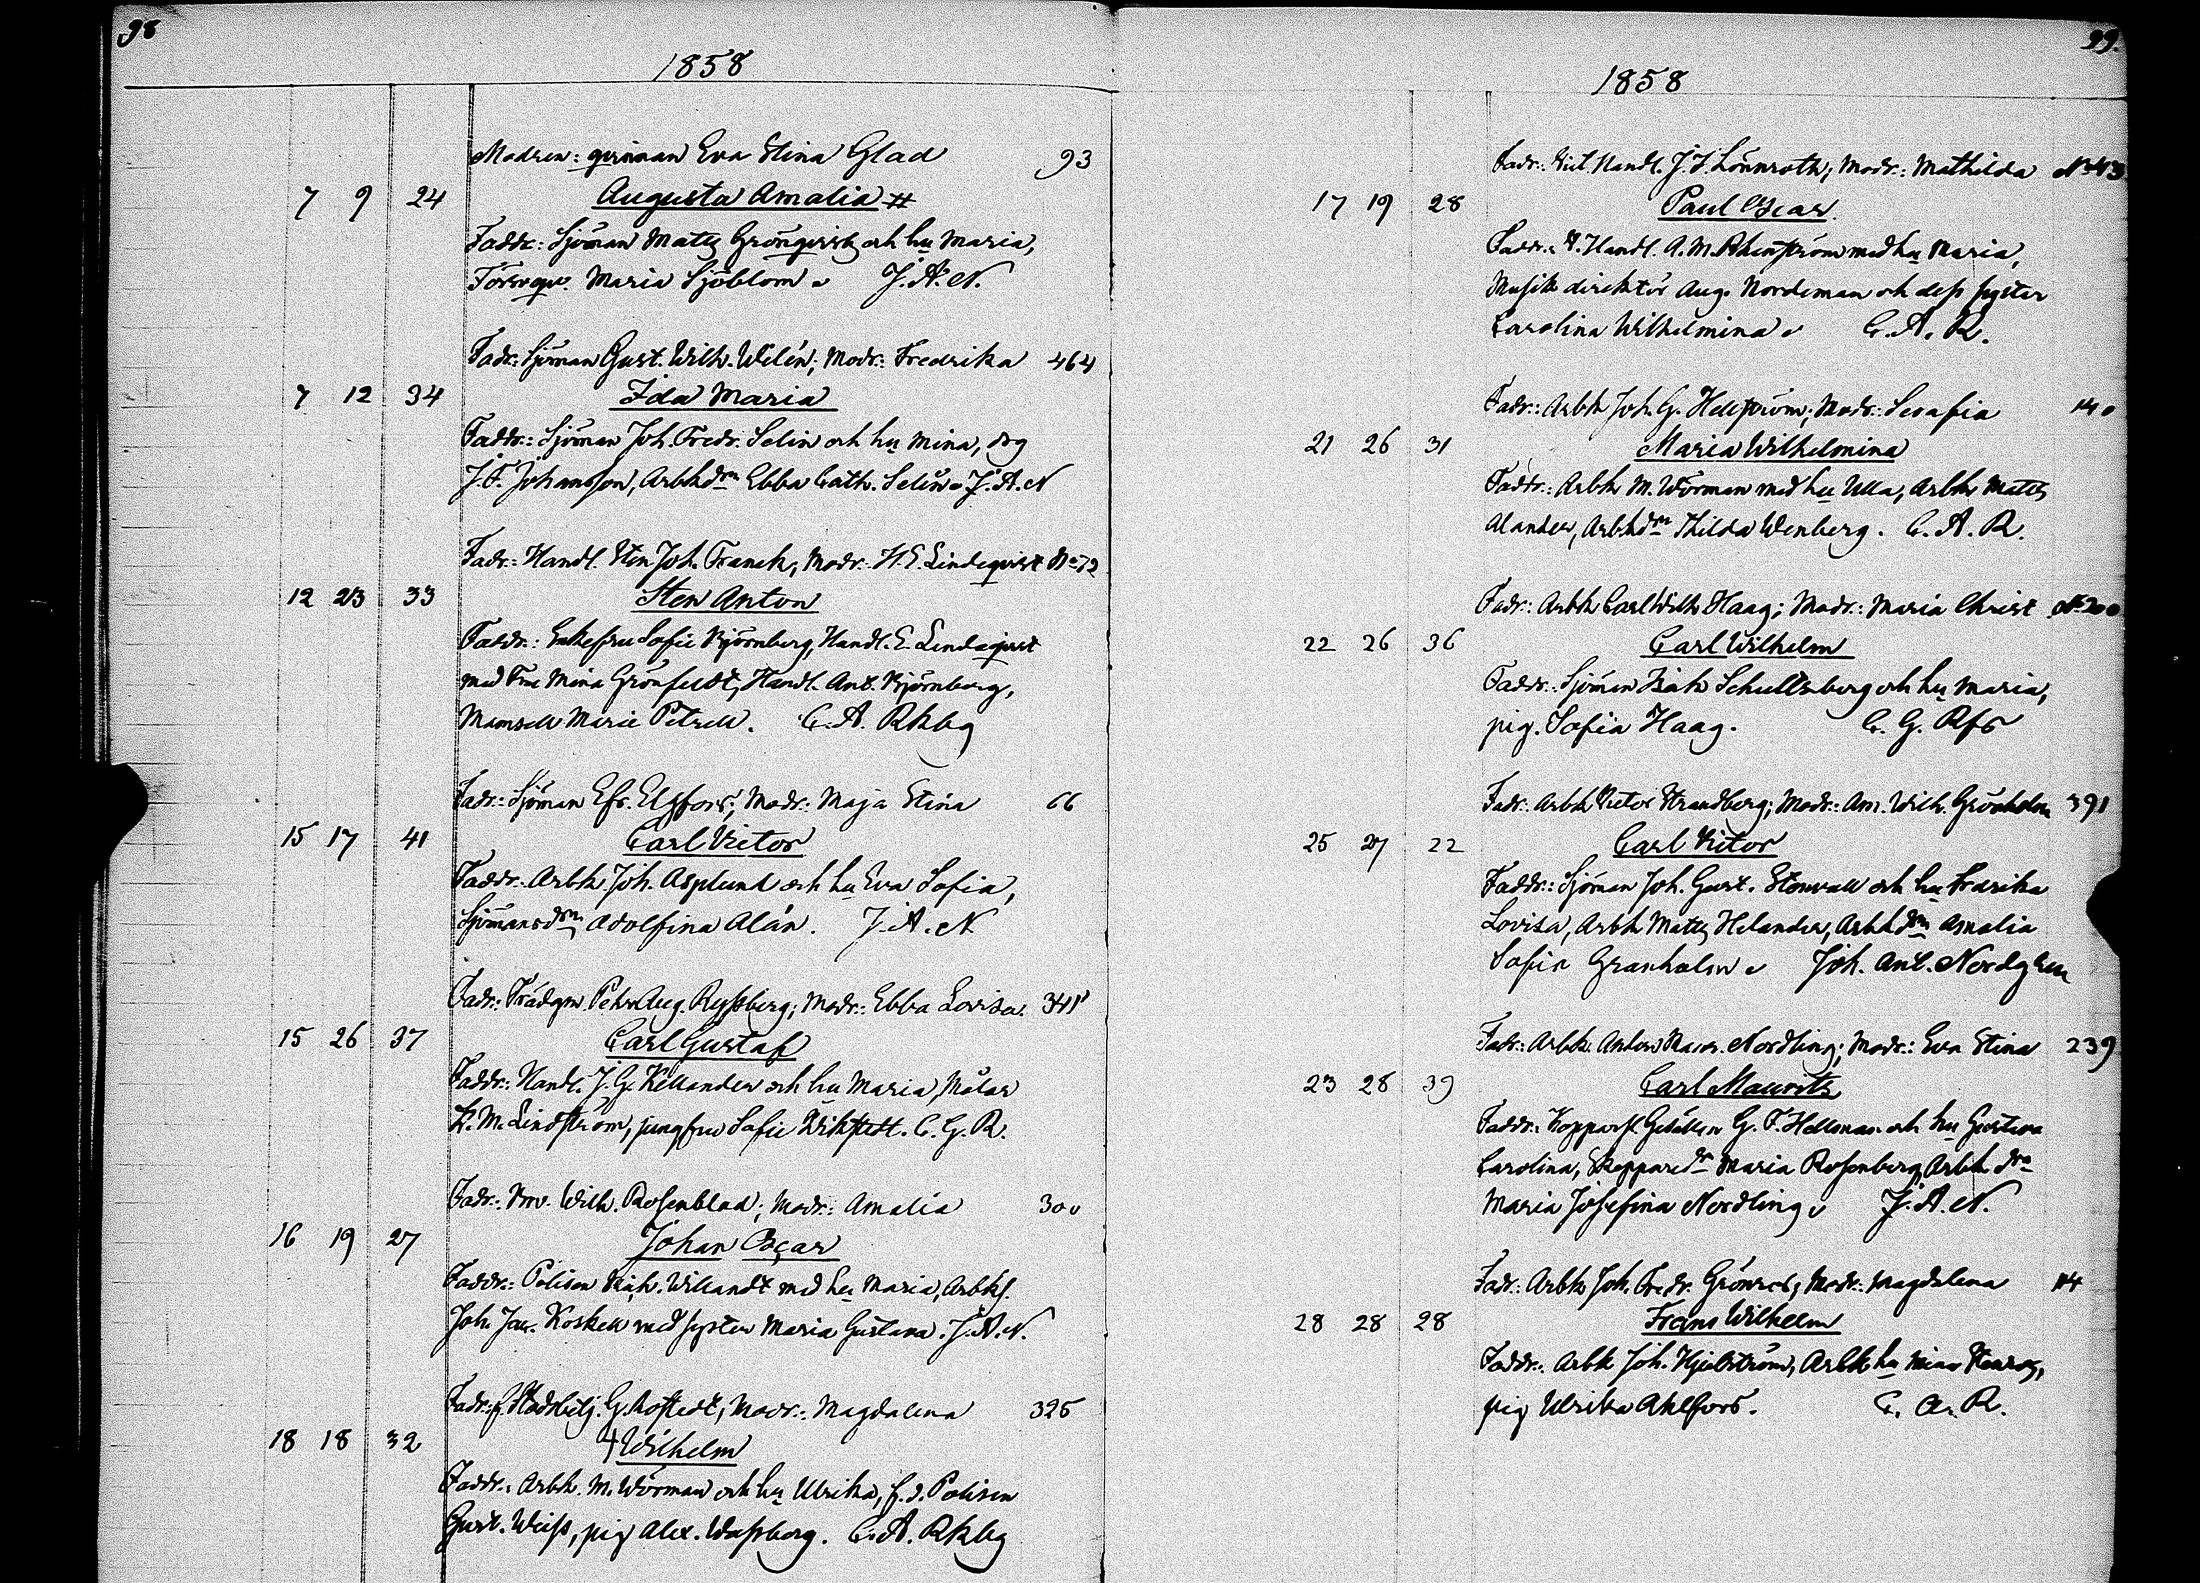 98
1858
Modren: qvinnan Eva Stina Glad 93
7 9 24 Augusta Amalia #
Faddr: Sjöman Matts Grönqvist och hu Maria,
Försvqv. Maria Sjöblom J. A. N.
Fadr: Sjöman Gust. Wilh. Welén; Modr: Fredrika 464
7 12 34 Ida Maria
Faddr: Sjöman Joh. Fredr. Selin och hu Mina, drg
J. F. Johansson, Arbkdrn Ebba Cath. Selin. J. A. N
Fadr: Handl. Sten Joh. Franck, Modr. H. E. Lindeqvist No 72
12 23 33 Sten Anton
Faddr: Enkefru Sofie Björnberg, Handl. E. Lindeqvist
med Fru Mina Grönfeldt, Handl. Ant. Björnberg,
Mamsell Marie Petrell. C. A. Rkbg
Fadr: Sjöman Efr. Elgfors; Modr: Maja Stina 66
15 17 41 Carl Victor
Faddr. Arbk. Joh. Asplund och hu Eva Sofia,
Sjömansdrn Adolfina Alén. J. A. N
Fadr: Trädgm. Petr Aug. Ryssberg; Modr: Ebba Lovisa. 341
15 26 37 Carl Gustaf
Faddr: Handl. J. G. Kellander och hu Maria, Målar
K. M. Lindström, jungfru Sofie Wikstedt. C. G. R.
Fadr: Wilh. Rosenblad; Modr: Amalia 300
16 19 27 Johan Oscar
Faddr: Polisen Willandt med hu Maria, Arbkf.
Joh. Jac. Koskell med syster Maria Gustava. J. A. N.
Fadr: f. Stadsbetj. G. Hofstedt; Modr: Magdalena 325
18 18 32 † Wilhelm
Faddr: Arbk. M. Wörman och hu Ulrika, f. d. Polisen
Gust. Weiss, pig Alex. Wassberg. C. A. Rkbg
99.
1858
Fadr: Vict. Handl. J. F. Lönnroth; Modr: Mathilda No 43
17 19 28 Paul Oscar
Faddr: V. Handl. A. M. Rhenström med hu Maria,
Musik direktör Aug. Nordeman och dess syster
Carolina Wilhelmina C. A. R.
Fadr: Arbk Joh. G. Hellström; Modr: Serafia 140
21 26 31 Maria Wilhelmina
Faddr: Arbk M. Wörman med hu Ulla, Arbk Matts
Alander, Arbkdrn Thilda Wenberg. C. A. R.
Fadr: Arbk Carl Wilh Haag; Modr: Maria Christ. No 200
22 26 36 Carl Wilhelm
Faddr: Sjöman Isak Schultzberg och hu Maria,
pig. Sofia Haag. C. G. Rfs
Fadr: Arbk Victor Strandberg; Modr: Am. Wilh. Grönholm 391
25 27 22 Carl Victor
Faddr: Sjöman Joh. Gust. Stenvall och hu Fredrika
Lovisa, Arbk Matts Helander, Arbkdrn Amalia
Sofia Granholm Joh. Ant. Nordgren
Fadr: Arbk. Anders Nordling; Modr: Eva Stina 239
23 28 39 Carl Mauritz
Faddr: Kopparsl. Gesällen G. F. Hellman och hu Gustava
Carolina, Skepparedr Maria Rosenberg, Arbk drn
Maria Josefina Nordling J. A. N.
Fadr: Arbk Joh. Fredr. Grönroos; Modr: Magdalena 114
28 28 28 Frans Wilhelm
Faddr: Arbk Joh. Hjelström, Arbk hu Mina
pig Ulrika Ahlfors. C. A. R.